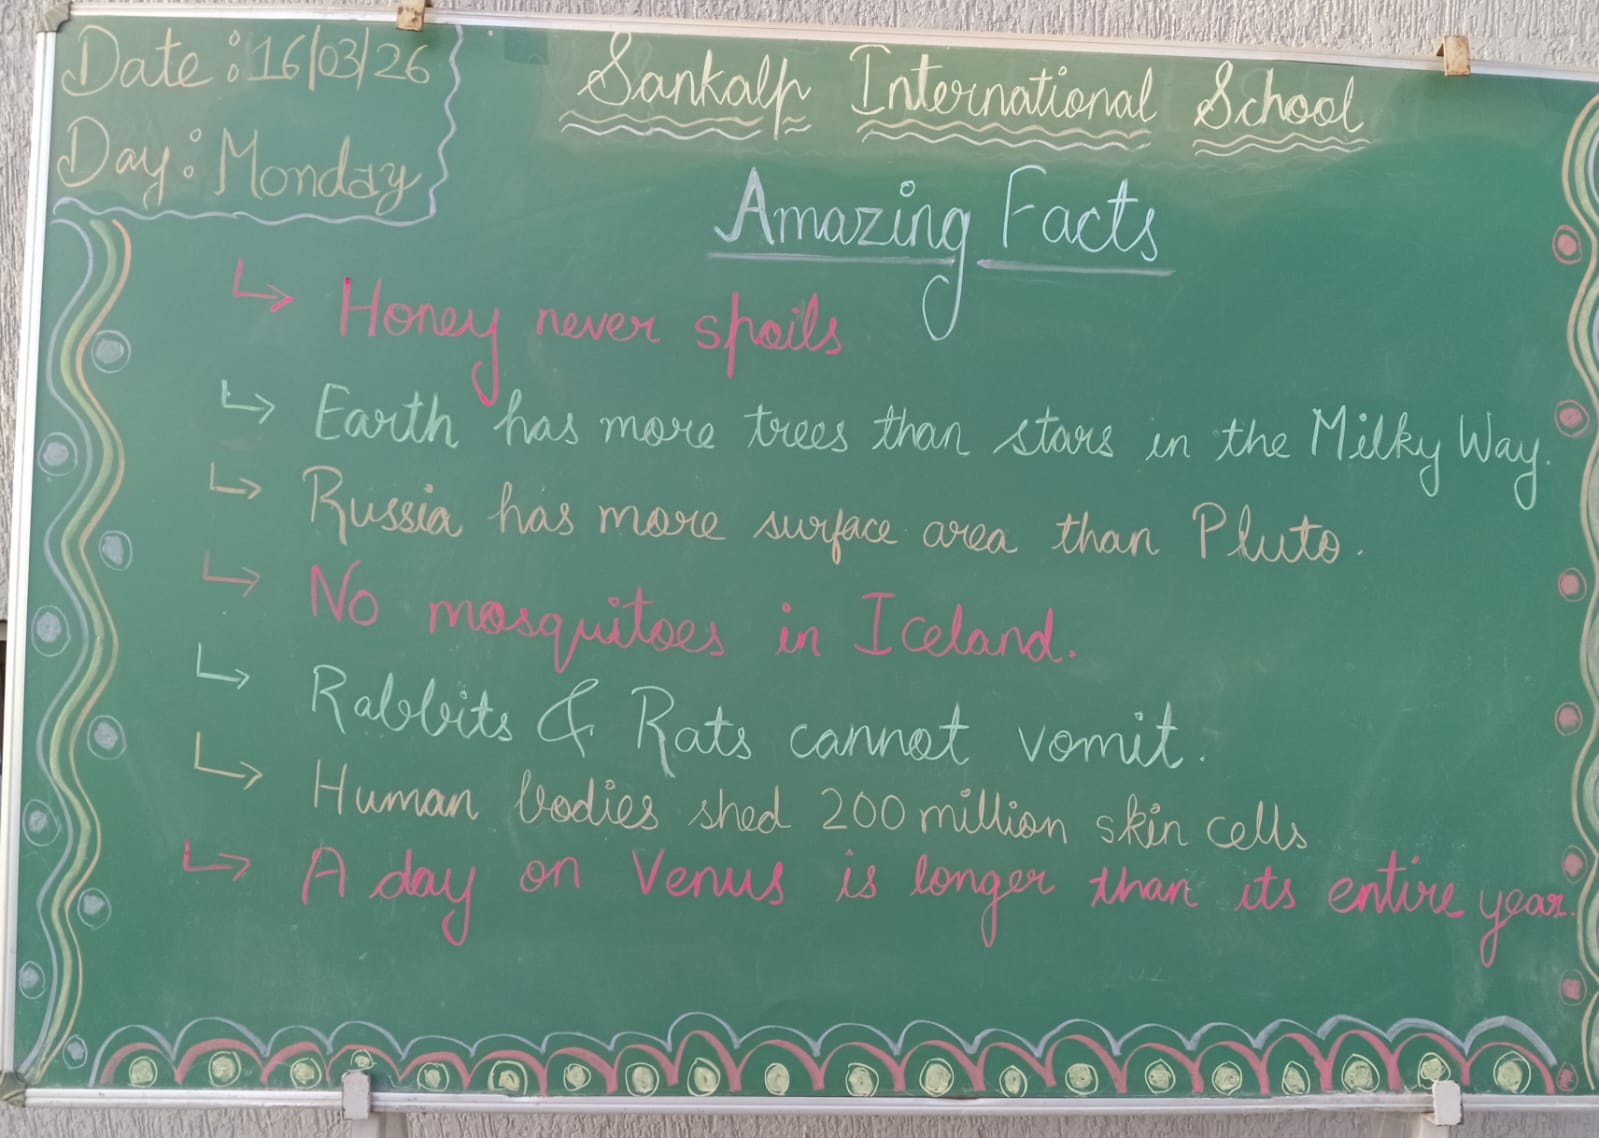 Date : 16/03/26
Day : Monday
Sankalp International School
Amazing Facts
Honey never spoils
Earth has more trees than stars in the Milky Way.
Russia has more surface area than Pluto.
No mosquitoes in Iceland.
Rabbits & Rats cannot vomit.
Human bodies shed 200 million skin cells
A day on Venus is longer than its entire year.